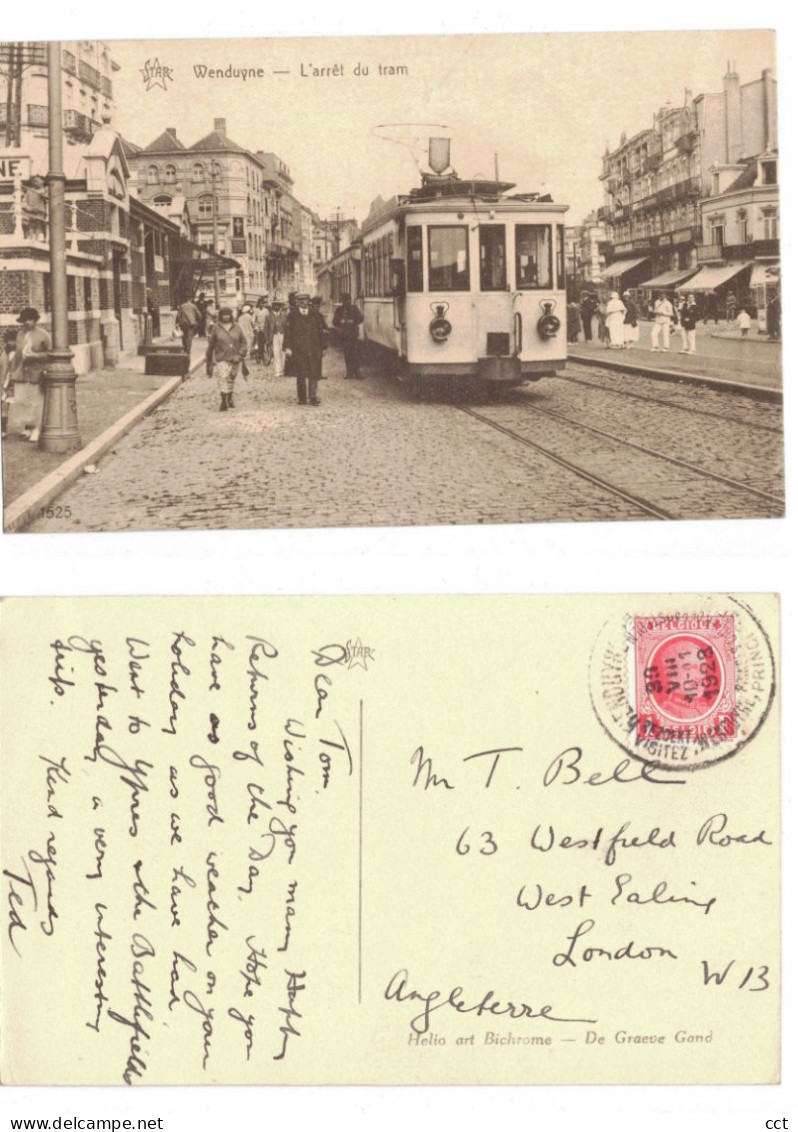 STAR
Wenduyne — L'arrêt du tram
NE
1525
STAR
Dear Tom.
Wishing you many Happy
Returns of the Day. Hope you
have as good weather on your
holiday as we have had.
Went to Ypres & the Battlefields
yesterday, a very interesting
trip. Kind regards
Ted
BELGIQUE
30
VIII
10-11
1928
VISITEZ
Mr T. Bell
63 Westfield Road
West Ealing
London
W 13
Angleterre
Helio art Bichrome — De Graeve Gand
cct
Delcampe.net